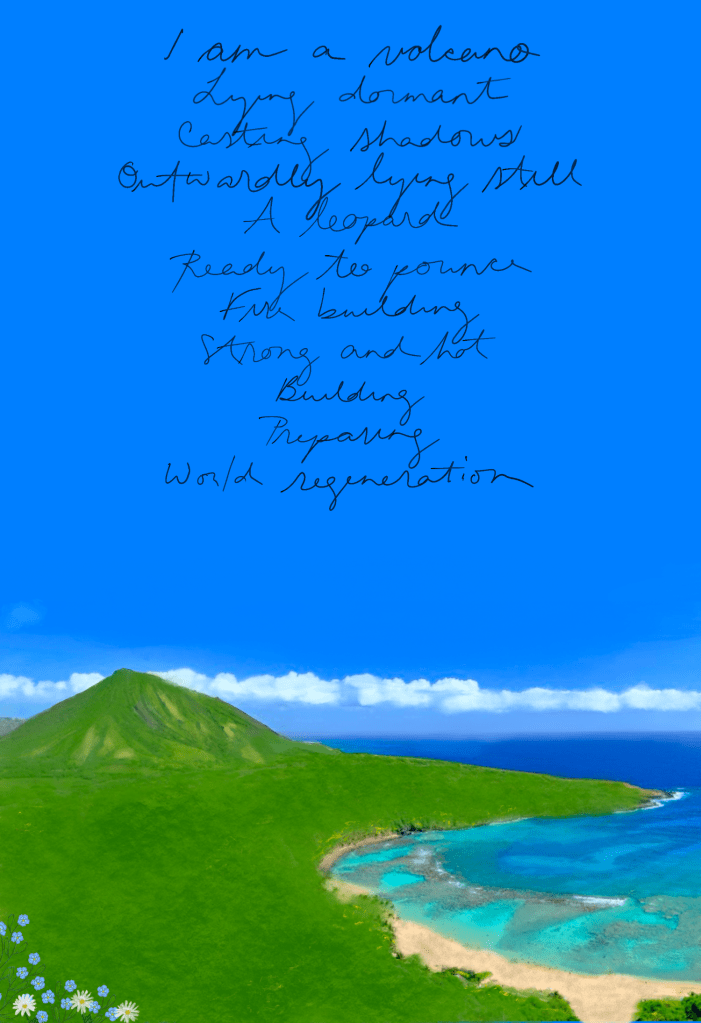 I am a volcano
Lying dormant
Casting shadows
Outwardly lying still
A leopard
Ready to pounce
Fire building
Strong and hot
Building
Preparing
World regeneration